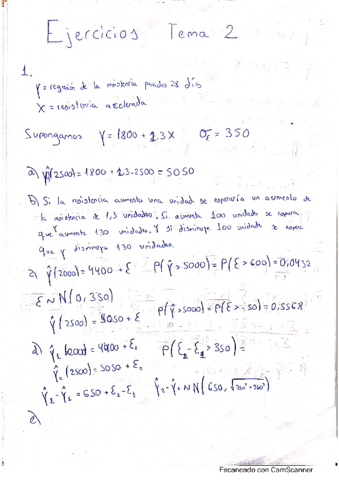 Ejercicios Tema 2
1.
Y = regresión de la resistencia pasados 28 días
X = resistencia acelerada
Supongamos Y = 1800 + 1.3X σε = 350
a) ŷ(2500) = 1800 + 1.3·2500 = 5050
b) Si la resistencia aumenta una unidad se esperaría un aumento de
la resistencia de 1,3 unidades. Si aumenta 100 unidades se espera
que Y aumente 130 unidades. Y si disminuye 100 unidades se espera
que Y disminuya 130 unidades.
c) Ŷ(2000) = 4400 + ε P(Ŷ > 5000) = P(ε > 600) = 0,0432
ε ~ N(0, 350)
Ŷ(2500) = 5050 + ε P(Ŷ > 5000) = P(ε > -50) = 0.5568
d) Ŷ1(2000) = 4400 + ε1 P(ε2 - ε1 > 350) =
Ŷ2(2500) = 5050 + ε2
Ŷ2 - Ŷ1 = 650 + ε2 - ε1 Ŷ2 - Ŷ1 ~ N(650, √350² + 350²)
e)
Escaneado con CamScanner